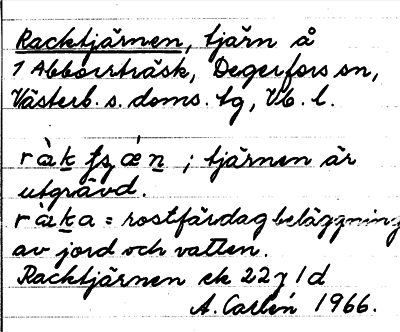 Racktjärnen, tjärn å
1 Abborrträsk, Degerfors sn,
Västerb. s. doms. tg, Vb. l.
; tjärnen är
utgrävd.
ràka = rostfärdag beläggning
av jord och vatten.
Racktjärnen ek 22 J 1 d
A. Carlén 1966.